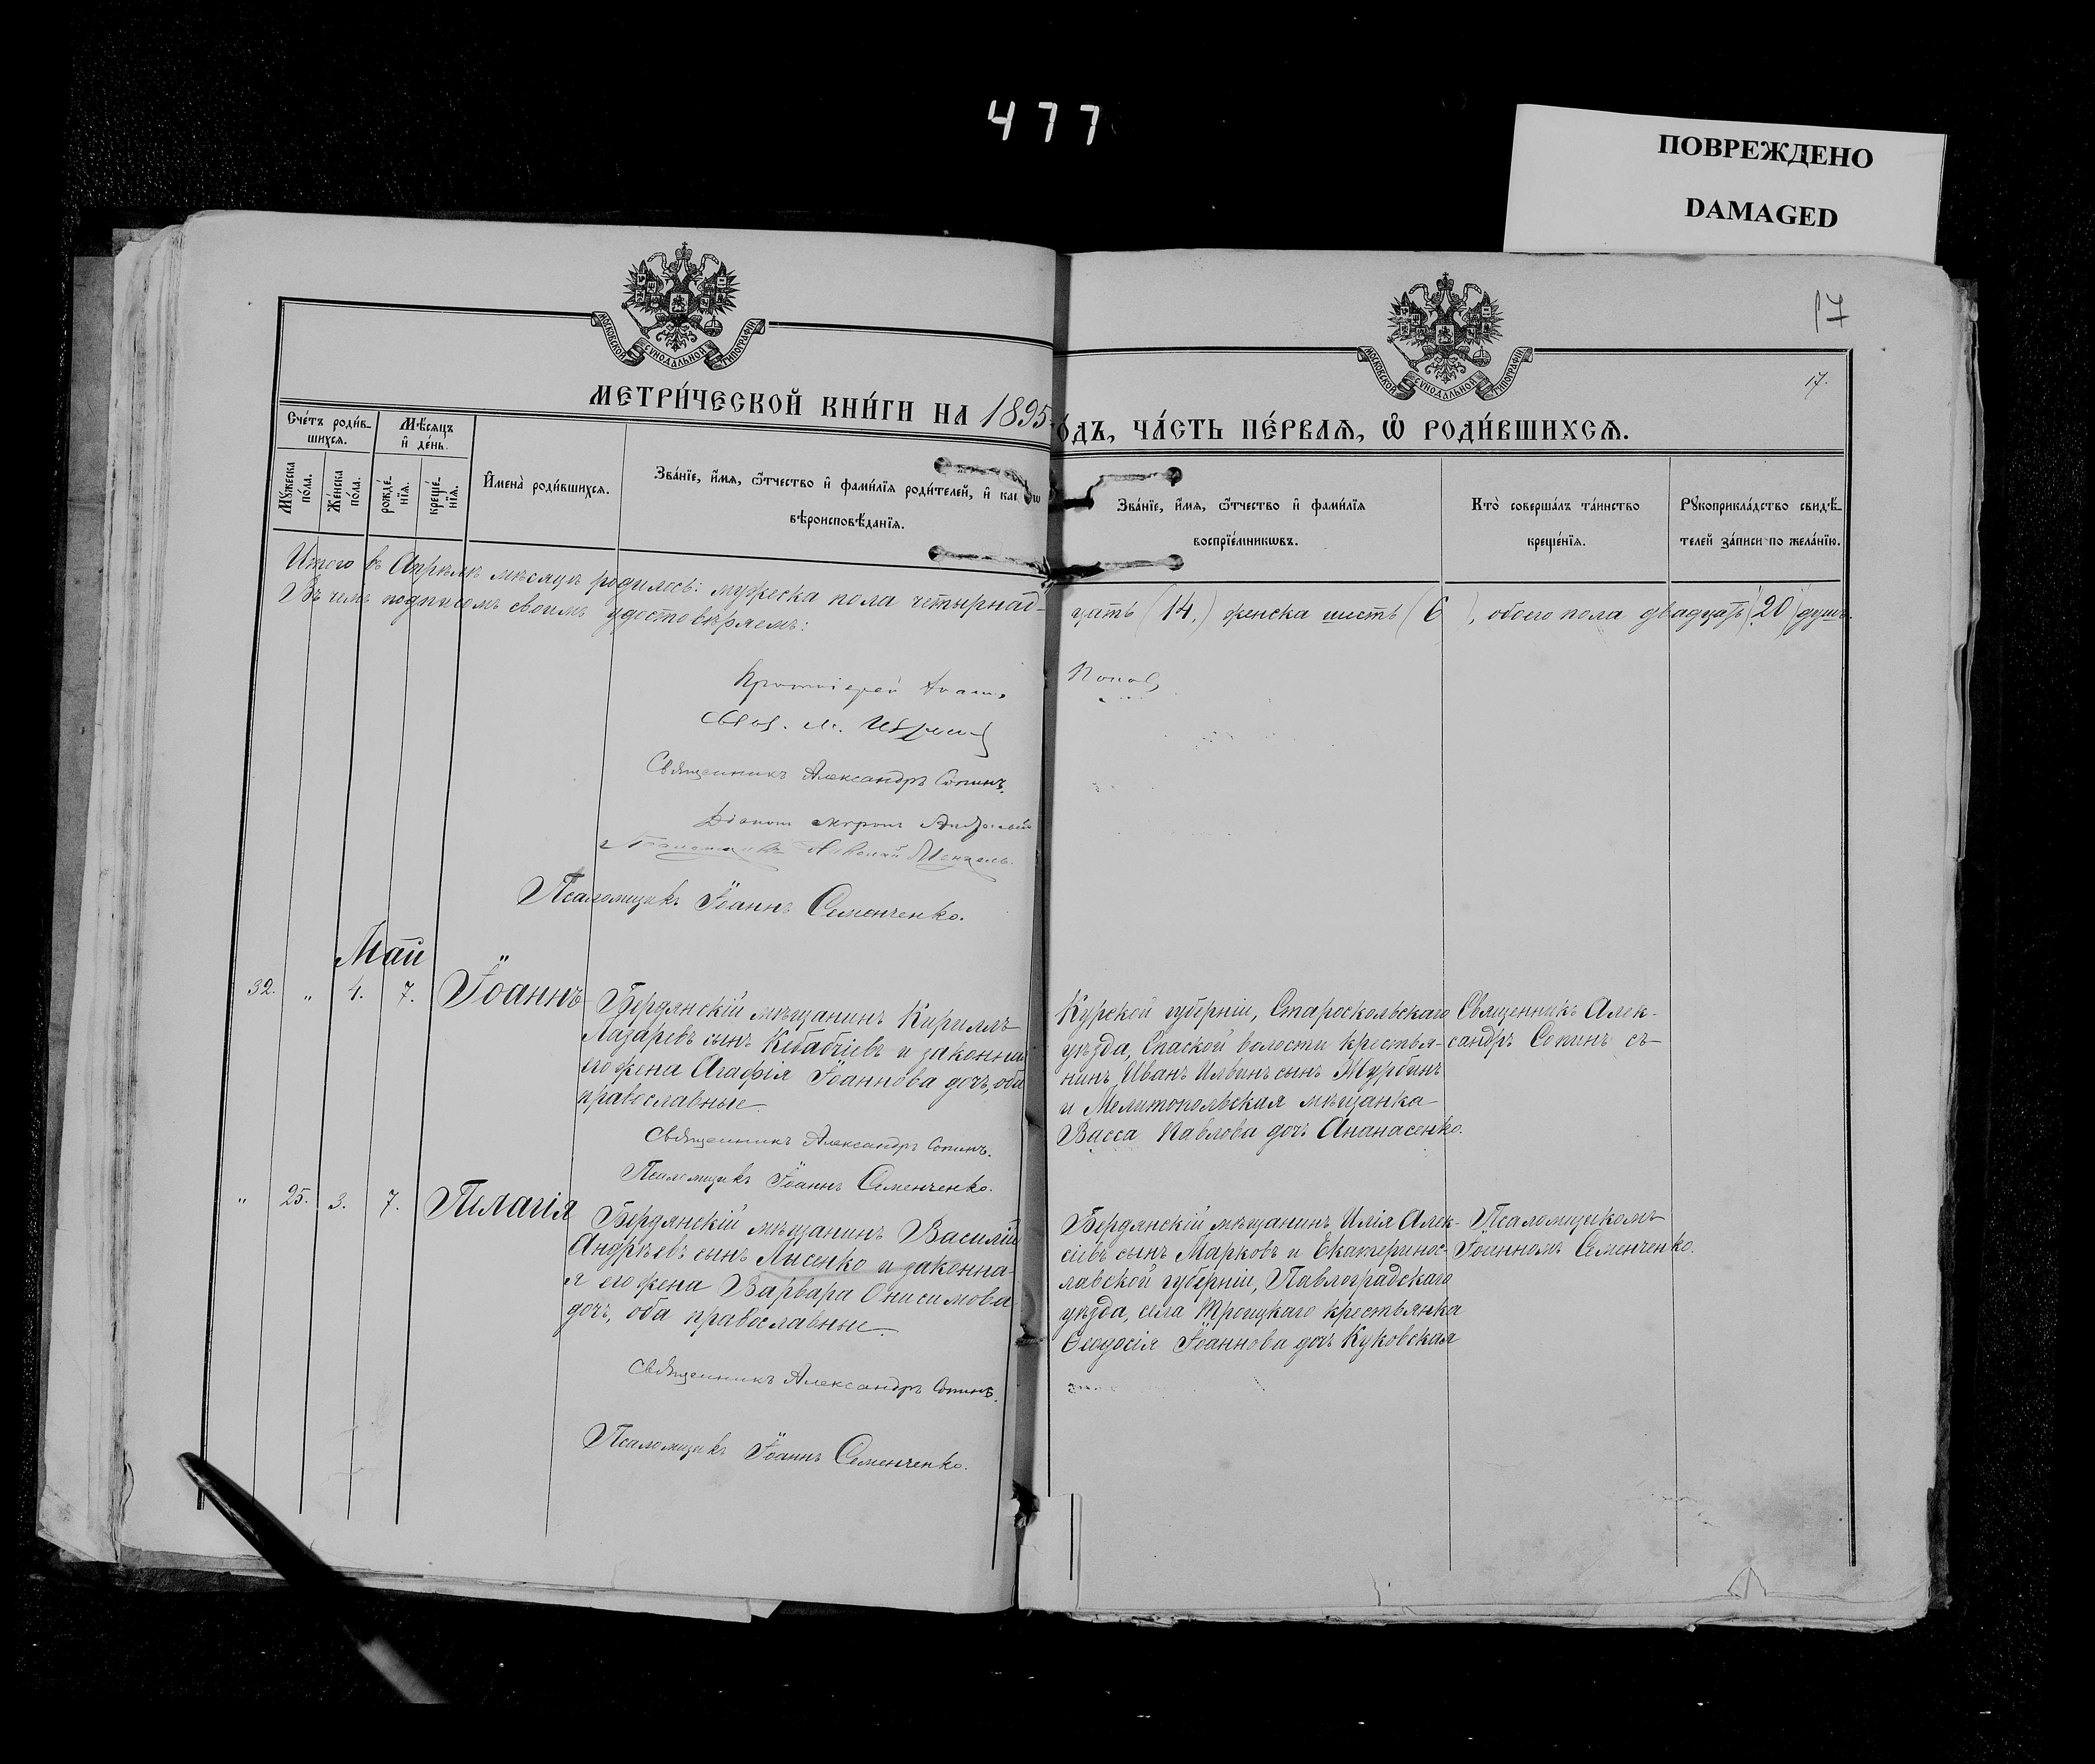 477
ПОВРЕЖДЕНО
DAMAGED
17
17.
МОСКОВСКОЙ СѴНОДАЛЬНОЙ ТИПОГРАФІИ
МОСКОВСКОЙ СѴНОДАЛЬНОЙ ТИПОГРАФІИ
МЕТРИ́ЧЕСКОЙ КНИ́ГИ НА 1895
О́ДЪ, ЧА́СТЬ ПЕ́РВАѦ, Ѽ РОДИ́ВШИХСѦ.
Сче́тъ роди́в-
шихся.
Мꙋ́жеска по́ла.
Же́нска по́ла.
Мѣ́сяцъ
и҆ де́нь.
рожде́нїя.
креще́нїя.
И҆мена̀ роди́вшихся.
Зва́нїе, и҆́мя, ѻ҆́тчество и҆ фами́лїя роди́телей, и҆ как
вѣроисповѣ́данїя.
Зва́нїе, и҆́мя, ѻ҆́тчество и҆ фами́лїя
воспрїе́мникѡвъ.
Кто̀ соверша́лъ та́инство
креще́нїя.
Рꙋкоприкла́дство свидѣ́-
телей за́писи по жела́нїю.
Итого въ Апрѣлѣ мѣсяцѣ родилось: мужеска пола четырнад-
цать (14.) женска шесть (6), обоего пола двадцать (20) душъ.
Въ чемъ подписомъ своимъ удостовѣряемъ:
Протоіерей Іоаннъ Поповъ
Свящ. М.
Священникъ Александръ Сопинъ.
Діаконъ
Николай
Псаломщикъ Іоаннъ Семенченко.
Май
32. " 4. 7. Іоаннъ
Бердянскій мѣщанинъ Кириллъ
Лазаревъ сынъ Кебабчіевъ и законная
его жена Агафія Іоаннова дочь, оба
православные.
Священникъ Александръ Сопинъ.
Псаломщикъ Іоаннъ Семенченко.
Курской губерніи, Староскольскаго
уѣзда, Спаской волости крестья-
нинъ Иванъ Ильинъ сынъ Журбинъ
и Мелитопольская мѣщанка
Васса Павлова дочь Ананасенко.
Священникъ Алек-
сандръ Сопинъ съ
" 25. 3. 7. Пелагія
Бердянскій мѣщанинъ Василій
Андреевъ сынъ Лисенко и законна-
я его жена Варвара Онисимова
дочь, оба православные.
Священникъ Александръ Сопинъ.
Псаломщикъ Іоаннъ Семенченко.
Бердянскій мѣщанинъ Илія Алек-
сіевъ сынъ Марковъ и Екатеринос-
лавской губерніи, Павлоградскаго
уѣзда, села Троицкаго крестьянка
Ѳеодосія Іоаннова дочь Куковская
Псаломщикомъ
Іоанномъ Семенченко.